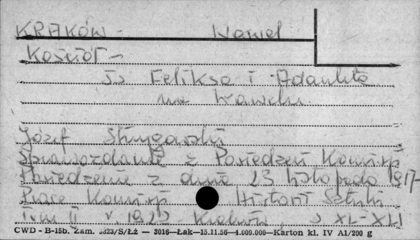 KRAKÓW - Wawel
Kościół -
Św Feliksa i Adaukta
na Wawelu
Józef
Sprawozdania z Posiedzeń Komisji
Posiedzenie z dnia 23 listopada 1917
Prace Komisji Histori Sztuki
Tom II r. 1922 Kraków s XL-XLI
CWD - B-15b. Zam. 2823/S/Łż — 3016—Łak—15.11.56—4.000.000—Karton kl. IV A1/200 g